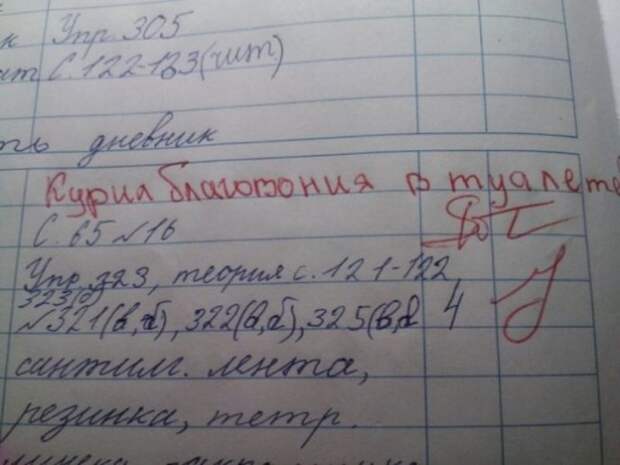 к Упр. 305
ат С. 122-123 (чит.)
ть дневник
Курил благовония в туалете
С. 65 №16
Упр. 323, теория с. 121-122
323(б)
№321(в,д), 322(в,б), 325(в, 4
сантим. лента,
резинка, тетр.